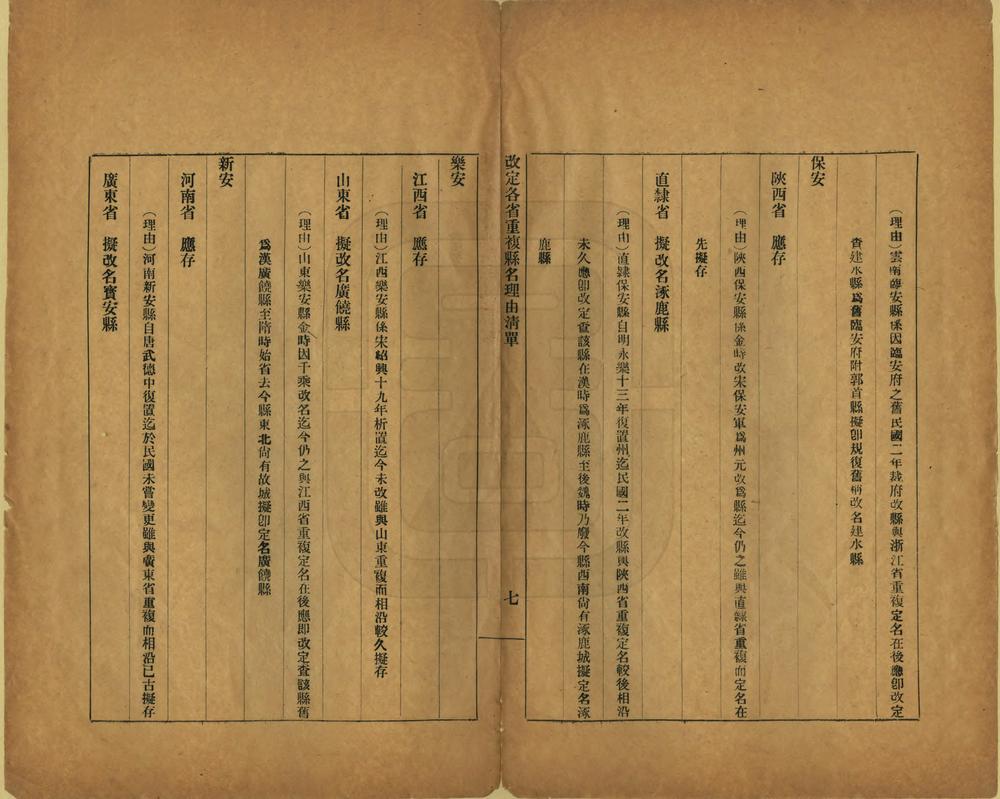 （理由）雲南臨安縣係因臨安府之舊民國二年裁府改縣與浙江省重複定名在後應卽改定
查建水縣爲舊臨安府附郭首縣擬卽規復舊稱改名建水縣
保安
陝西省　應存
（理由）陝西保安縣係金時改宋保安軍爲州元改爲縣迄今仍之雖與直隸省重複而定名在
先擬存
直隸省　擬改名涿鹿縣
（理由）直隸保安縣自明永樂十三年復置州迄民國二年改縣與陝西省重複定名較後相沿
未久應卽改定查該縣在漢時爲涿鹿縣至後魏時乃廢今縣西南尙有涿鹿城擬定名涿
鹿縣
改定各省重複縣名理由淸單
七
樂安
江西省　應存
（理由）江西樂安縣係宋紹興十九年析置迄今未改雖與山東重複而相沿較久擬存
山東省　擬改名廣饒縣
（理由）山東樂安縣金時因千乘改名迄今仍之與江西省重複定名在後應卽改定查該縣舊
爲漢廣饒縣至隋時始省去今縣東北尙有故城擬卽定名廣饒縣
新安
河南省　應存
（理由）河南新安縣自唐武德中復置迄於民國未嘗變更雖與廣東省重複而相沿已古擬存
廣東省　擬改名寶安縣